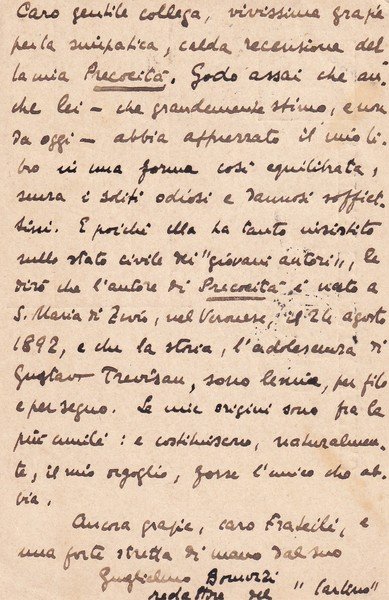 Caro gentile collega, vivissime grazie
per la simpatica, calda recensione del
la mia Precocità. Godo assai che an
che lei — che grandemente stimo, e non
da oggi — abbia apprezzato il mio li
bro in una forma così equilibrata,
senza i soliti odiosi e dannosi soffiet
tini. E poiché ella ha tanto insistito
sullo stato civile dei "giovani autori", le
dirò che l'autore di Precocità è nato a
S. Maria di Zevio, nel Veronese, il 24 agosto
1892, e che la storia, l'adolescenza di
Gustavo Trevisan, sono le mie, per filo
e per segno. Le mie origini sono fra le
più umili: e costituiscono, naturalmen
te, il mio orgoglio, forse l'unico che ab
bia.
Ancora grazie, caro Frateili, e
una forte stretta di mano dal suo
Guglielmo Bonuzzi
redattore del "Carlino"